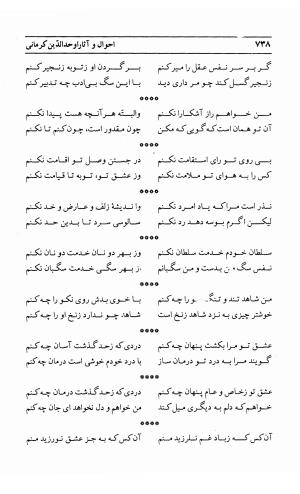 ۷۳۸
احوال و آثار اوحدالدّین کرمانی
گر بر سر نفس عقل را میر کنم
بر گردن او ز توبه زنجیر کنم
زنجیر گسل کند چو مر داری دید
با این سگ بی‌ادب چه تدبیر کنم
****
من خواهم راز آشکارا نکنم
والبتّه هر آنچه هست پیدا نکنم
آن تو همان است که گویی که مکن
چون مقدور است، چون کنم تا نکنم
****
بی روی تو رای استقامت نکنم
در جستن وصل تو اقامت نکنم
کس را به هوای تو ملامت نکنم
وز عشق تو، توبه تا قیامت نکنم
****
نذر است مرا که یاد امرد نکنم
واندیشهٔ زلف و عارض و خد نکنم
لیکن اگرم بوسه دهد رد نکنم
سالوسی سرد تا بدین حد نکنم
****
سلطان خودم خدمت سلطان نکنم
وز بهر دو نان خدمت دو نان نکنم
نفس سگ بدست و من سگبانم
از بهر سگی خدمت سگبان نکنم
****
من شاهد تند و تنگ‌خو را چه کنم
با خوی بدش روی نکو را چه کنم
خوشتر چیزی به نزد شاهد زر است
شاهد، چو ندارد زنخ او را چه کنم
****
عشق تو مرا بکشت پنهان چه کنم
دردی که ز حد گذشت آسان چه کنم
گویند مرا به درد تو درمان ساز
با درد خودم خوشی است درمان چه کنم
****
عشق تو ز خاص و عام پنهان چه کنم
دردی که ز حد گذشت درمان چه کنم
خواهم که دلم به دیگری میل کند
من خواهم و دل نخواهد ای جان چه کنم
****
آن کس که زیاد غم نلرزید منم
آن کس که به جز عشق نورزید منم